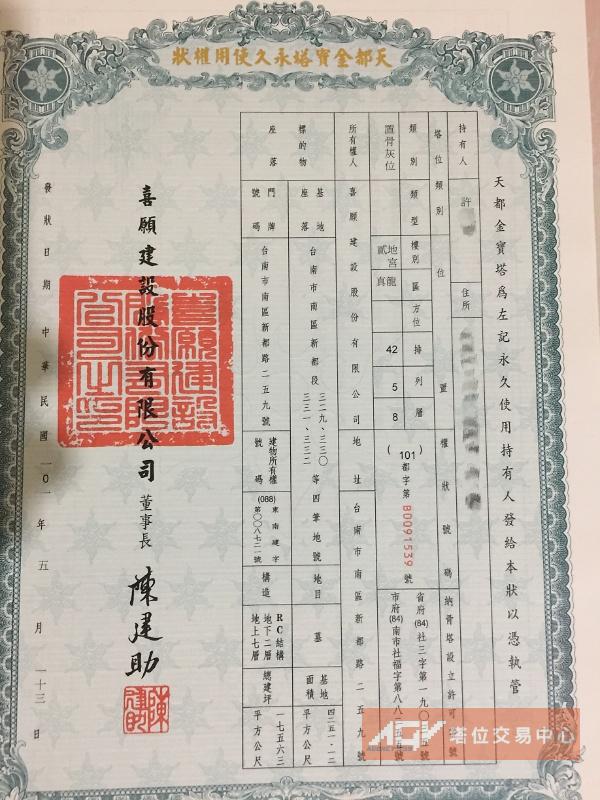 天都金寶塔永久使用權狀
天都金寶塔為左記永久使用持有人發給本狀以憑執管
持有人
許
住所
塔位類別
位置
權狀號碼
納骨塔設立許可
號
類別
類型
樓別
區
方位
排
列
層
(101)都字第B0091539號
省府(84)社三字第一九０
號
市府(84)南市社福字第八八
號
置骨灰位
地宮貳
龍真
42
5
8
所有權人
喜願建設股份有限公司
地址
台南市南區新都路二五九號
標的物
基地座落
台南市南區新都段
三二九、三三０
三三一、三三二
等四筆地號
地目
墓
基地面積
四二五一.一二
平方公尺
座落
門牌號碼
台南市南區新都路二五九號
建物所有權號碼
(088)東南建字
第００八七二一號
構造
RC結構
地下二層
地上七層
總建坪
一七五六三
平方公尺
喜願建設股份有限公司
董事長
陳建助
喜願建設股份有限公司之印
發狀日期 中華民國一０一年五月二十三日
AGV 塔位交易中心